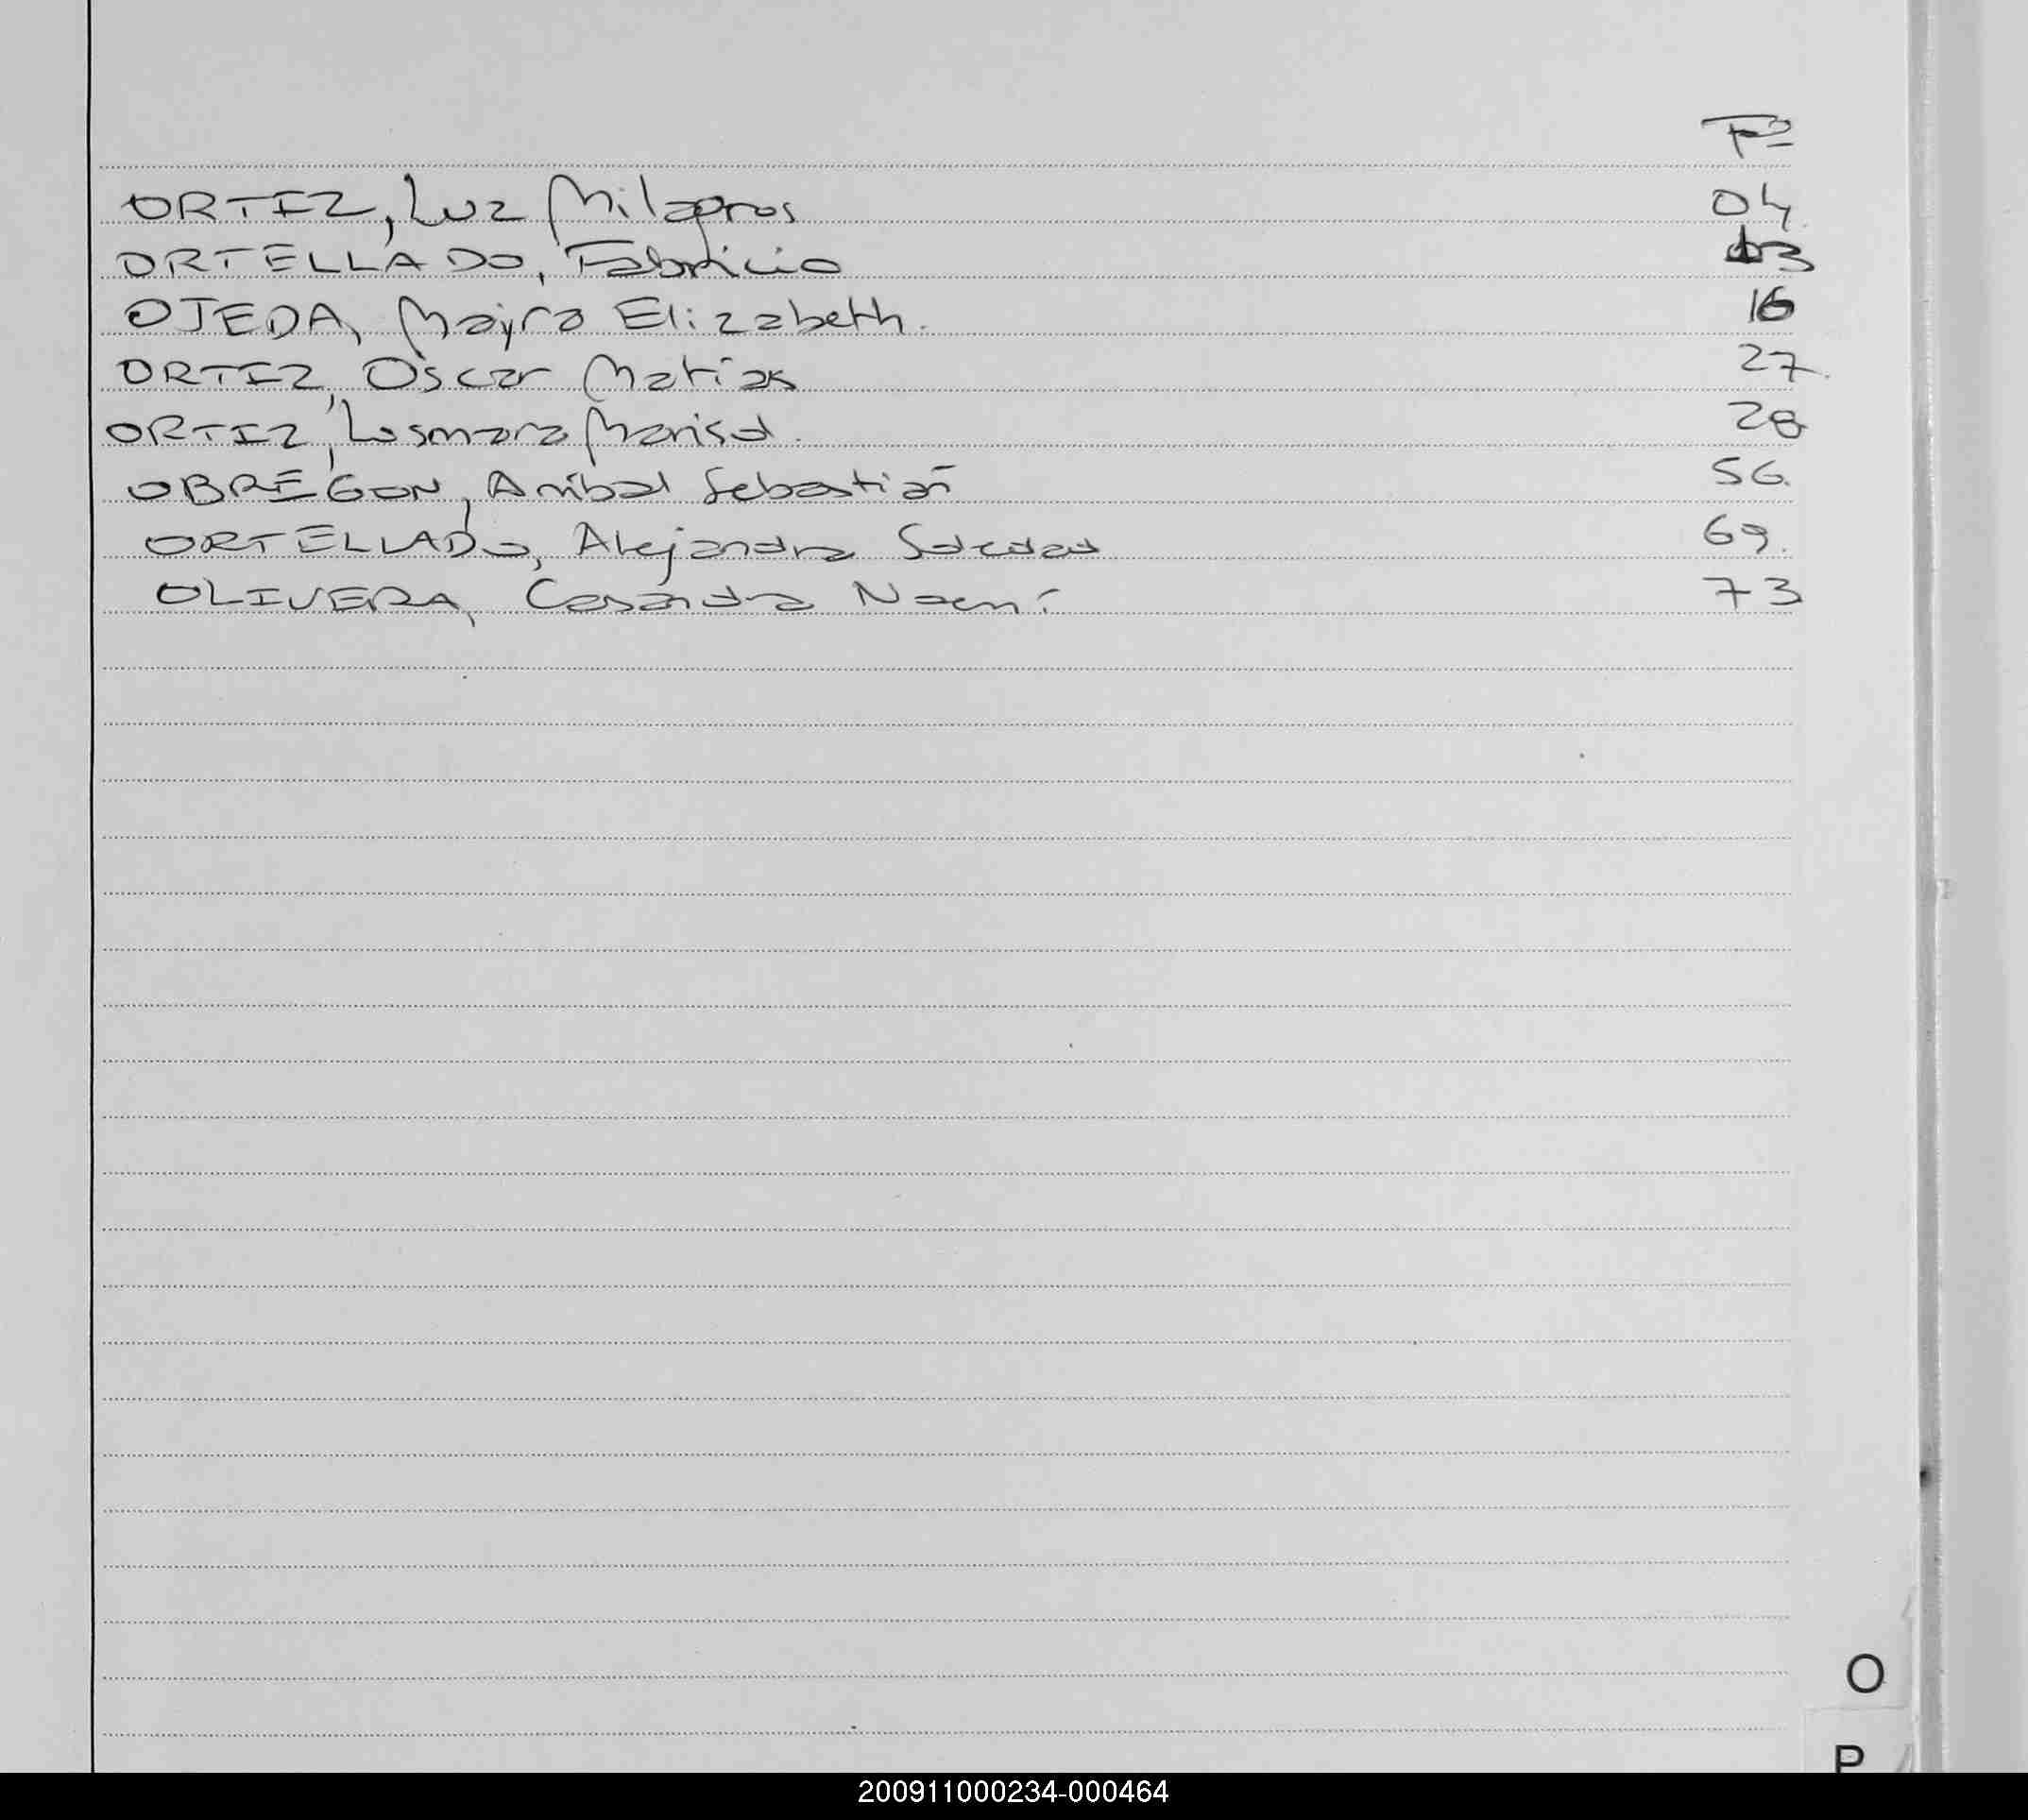 Fº
ORTIZ, Luz Milagros 04
ORTELLADO, Fabricio 13
OJEDA, Mayra Elizabeth. 16
ORTIZ, Oscar Matias 27.
ORTIZ, Marisol. 28
OBREGON, Anibal Sebastián 56.
ORTELLADO, Alejandra Soledad 69.
OLIVERA, Casandra Noemí 73
O
P
200911000234-000464